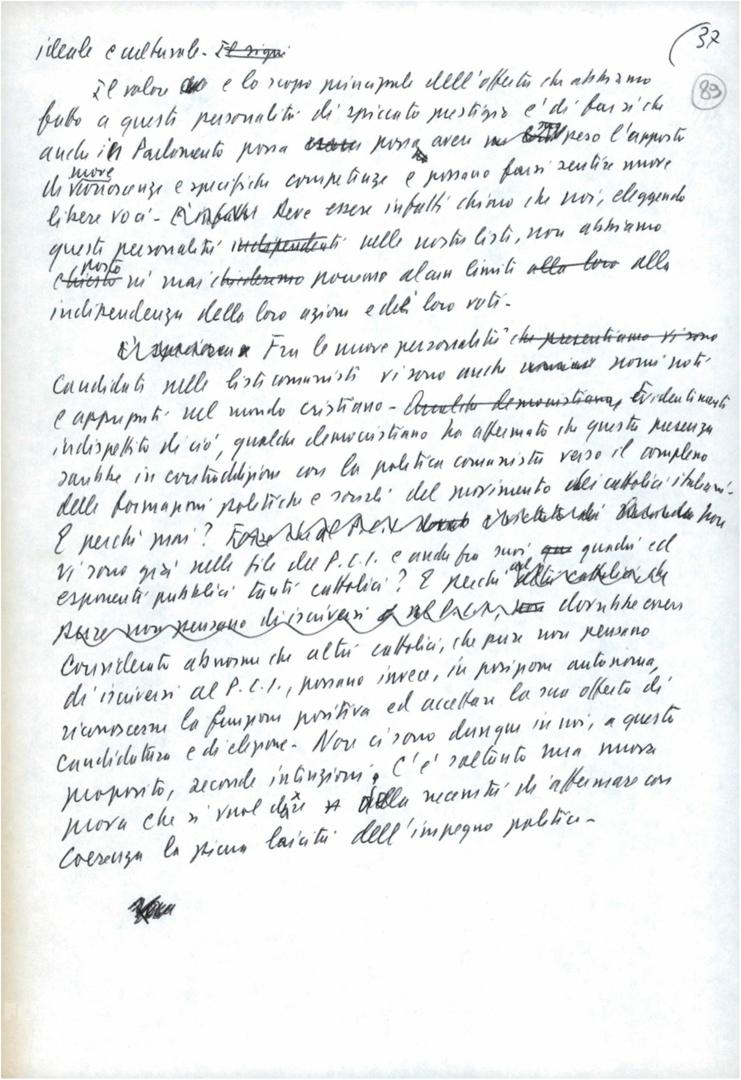 37
89
ideale e culturale - Il signi
Il valore e lo scopo principale dell'offerta che abbiamo
fatto a queste personalità di spiccato prestigio è di far sì che
anche in Parlamento possa possa avere peso l'apporto
nuove
di conoscenze e specifiche competenze e possano farsi sentire nuove
libere voci - Deve essere infatti chiaro che noi, eleggendo
queste personalità indipendenti nelle nostre liste, non abbiamo
posto
chiesto né mai chiederemo porremo alcun limite alla loro alla
indipendenza della loro azione e dei loro voti -
Fra le nuove personalità che presentiamo vi sono
candidate nelle liste comuniste vi sono anche nomi noti
e apprezzati nel mondo cristiano - Qualche democristiano, Evidentemente
indispettito di ciò, qualche democristiano ha affermato che questa presenza
sarebbe in contraddizione con la politica comunista verso il complesso
delle formazioni politiche e sociali del movimento dei cattolici italiani -
E perché mai? Non
vi sono già nelle file del P.C.I. e anche fra suoi quadri ed
esponenti pubblici tanti cattolici? E perché altri cattolici che
pure non pensano di iscriversi al P.C.I., dovrebbe essere
considerato abnorme che altri cattolici, che pure non pensano
di iscriversi al P.C.I., possano invece, in posizione autonoma,
riconoscerne la funzione positiva ed accettare la sua offerta di
candidatura e di elezione - Non ci sono dunque in noi, a questo
proposito, seconde intenzioni, c'è soltanto una nuova
prova che si vuol dare della necessità di affermare con
coerenza la piena laicità dell'impegno politico -